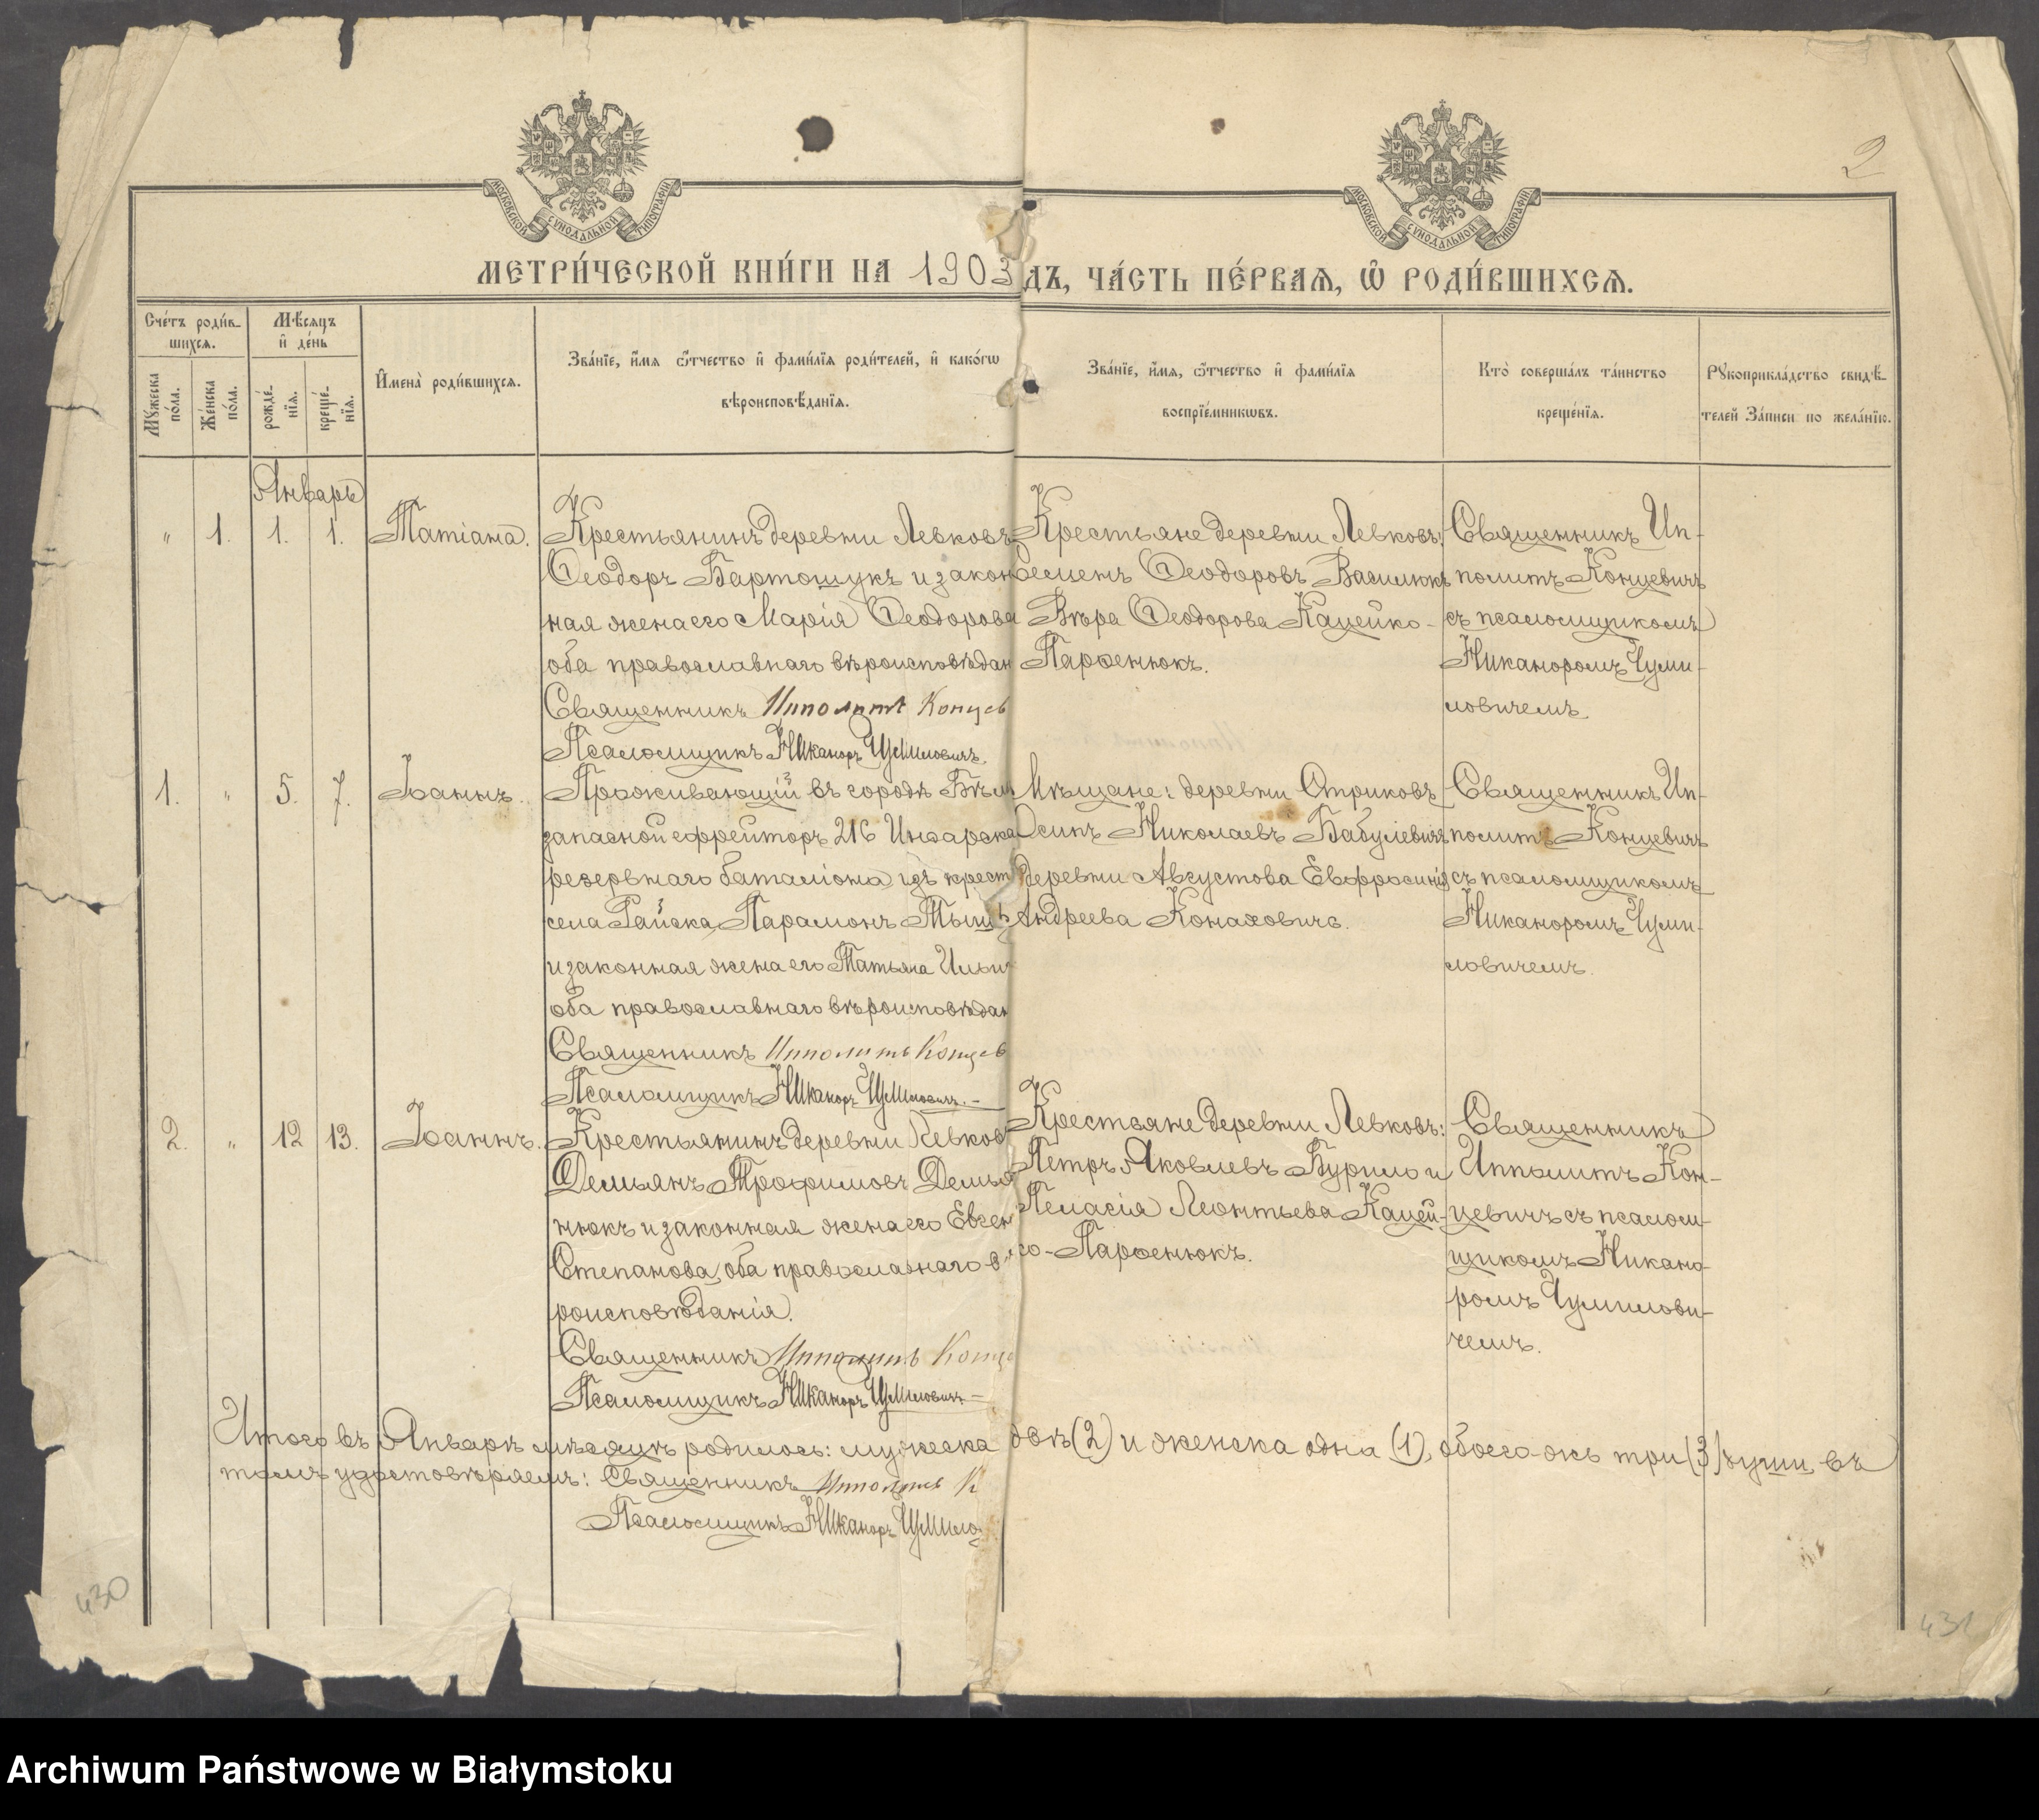 МОСКОВСКОЙ СѴНОДАЛЬНОЙ ТИПОГРАФІИ
МОСКОВСКОЙ СѴНОДАЛЬНОЙ ТИПОГРАФІИ
2
МЕТРИ́ЧЕСКОЙ КНИ́ГИ НА 1903
ДЪ, ЧА́СТЬ ПЕ́РВАѦ, Ѡ҆ РОДИ́ВШИХСѦ.
Сче́тъ роди́в-
шихсѧ.
Мѣ́сѧцъ
и҆ де́нь
Мꙋжеска
по́ла.
Же́нска
по́ла.
рожде́-
нїѧ.
креще́-
нїѧ.
И҆мена̀ роди́вшихсѧ.
Зва́нїе, и҆́мѧ ѻ҆́тчество и҆ фами́лїѧ роди́телей, и҆ како́гѡ
вѣроисповѣ́данїѧ.
Зва́нїе, и҆́мѧ, ѻ҆́тчество и҆ фами́лїѧ
воспрїе́мникѡвъ.
Кто̀ соверша́лъ та́инство
креще́нїѧ.
Рꙋкоприкла́дство свидѣ́-
телей За́писи по жела́нїю.
Январь
" 1. 1. 1. Татіана.
Крестьянинъ деревни Левковъ
Ѳеодоръ Бартошукъ и закон
ная жена его Марія Ѳеодорова
оба православнаго вѣроисповѣдан
Священникъ Ипполитъ Концев
Псаломщикъ Никаноръ Чумиловичъ.
Крестьяне деревни Левковъ:
Семенъ Ѳеодоровъ Василюкъ
Вѣра Ѳеодорова Кацейко-
Парѳенюкъ.
Священникъ Ип-
политъ Концевичъ
съ псаломщикомъ
Никаноромъ Чуми-
ловичемъ
1. " 5. 7. Іоаннъ.
Проживающій въ городѣ Бѣл
запасной ефрейторъ 216 Инсарска
резервнаго баталіона, изъ крест
села Райска, Парамонъ Тыш
и законная жена его Татьяна Ильи
оба православнаго вѣроисповѣдан
Священникъ Ипполитъ Концев
Псаломщикъ Никаноръ Чумиловичъ.-
Мѣщане: деревни Стриковъ
Осипъ Николаевъ Бабулевичъ
деревни Августова Евфросинія
Андреева Конаховичъ.
Священникъ Ип-
политъ Концевичъ
съ псаломщикомъ
Никаноромъ Чуми-
ловичемъ.
2. " 12 13. Іоаннъ.
Крестьянинъ деревни Левков
Демьянъ Трофимовъ Демья
нюкъ и законная жена его Евген
Степанова, оба православнаго в
роисповѣданія.
Священникъ Ипполитъ Конце
Псаломщикъ Никаноръ Чумиловичъ-
Крестьяне деревни Левковъ:
Петръ Яковлевъ Бурило и
Пелагія Леонтьева Кацей-
ко-Парѳенюкъ.
Священникъ
Ипполитъ Кон-
цевичъ съ псалом-
щикомъ Никано-
ромъ Чумилови-
чемъ.
Итого въ Январѣ мѣсяцѣ родилось: мужеска
двѣ (2) и женска одна (1), обоего-жъ три (3) души, въ
томъ удостовѣряемъ: Священникъ Ипполитъ К
Псаломщикъ Никаноръ Чумило
430
431
Archiwum Państwowe w Białymstoku